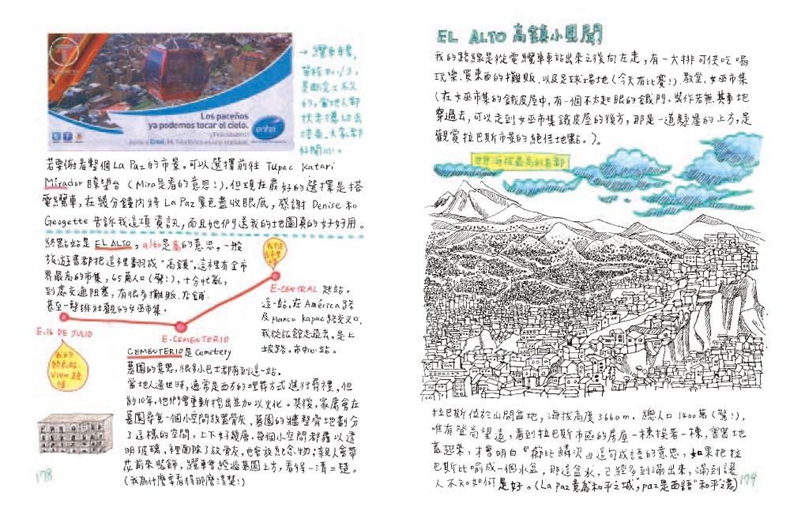 Los paceños
ya podemos tocar el cielo.
entel
→ 纜車車票,
若要俯看整個La Paz的市景,可以選擇前往 Tupac Katari
Mirador 瞭望台(Mira是看的意思!),但現在最好的選擇是搭
電纜車,在幾分鐘內將La Paz景色盡收眼底,感謝Denise和
Geogette告訴我這項資訊,而且她們送我的地圖真的好好用。
終點站是EL ALTO,alto是高的意思,一般
旅遊書都把這裡翻成"高鎮",這裡有全市
界最高的市集,65萬人口(發!),十分忙亂,
到處交通阻塞,有很多攤販、店鋪
甚至一整排壯觀的女巫市集。
E-CENTRAL 起站。
這一站,在América路
及Manco Kapac路交叉口,
我從旅館走過去,是上
坡路。市中心站。
E.16 DE JULIO
E-CEMENTERIO
CEMENTERIO是Cemetery
墓園的意思,很多小巴士都有到這一站。
當地人過世時,通常是西方的埋葬方式進行葬禮,但
約10年,他們會重新挖出並加以火化。然後,家屬會在
墓園尋求一個小空間放置骨灰,墓園的牆整齊地劃分
了這樣的空間,上下好幾層,每個小空間都羅以透
明玻璃,裡面除了放骨灰,也會放紀念物,親人會帶
花前來裝飾,纜車會經過墓園上方,看得一清二楚。
(我為什麼要看得那麼清楚!)
178
EL ALTO 高鎮小見聞
我的路線是從電纜車車站出來之後向左走,有一大排可供吃喝
玩樂、買東西的攤販,以及足球場地(今天有比賽!)、教堂、女巫市集
(在女巫市集的鐵皮屋中,有一個不太起眼的鐵門,裝作若無其事地
穿過去,可以走到女巫市集鐵皮屋的後方,那是一道懸崖的上方,是
觀賞拉巴斯市景的絕佳地點。)。
世界海拔最高的首都
拉巴斯位於山間盆地,海拔高度3660m,總人口1400萬(發!),
唯有登高望遠,看到拉巴斯市區的房屋一棟挨著一棟,密密地
蓋起來,才會明白"櫛比鱗次"這句成語的意思,如果把拉
巴斯比喻成一個水盆,那這盆水,已經多到滿出來,滿到讓
人不知如何是好。(La Paz意為"和平之城",paz是西語"和平"之意)
179